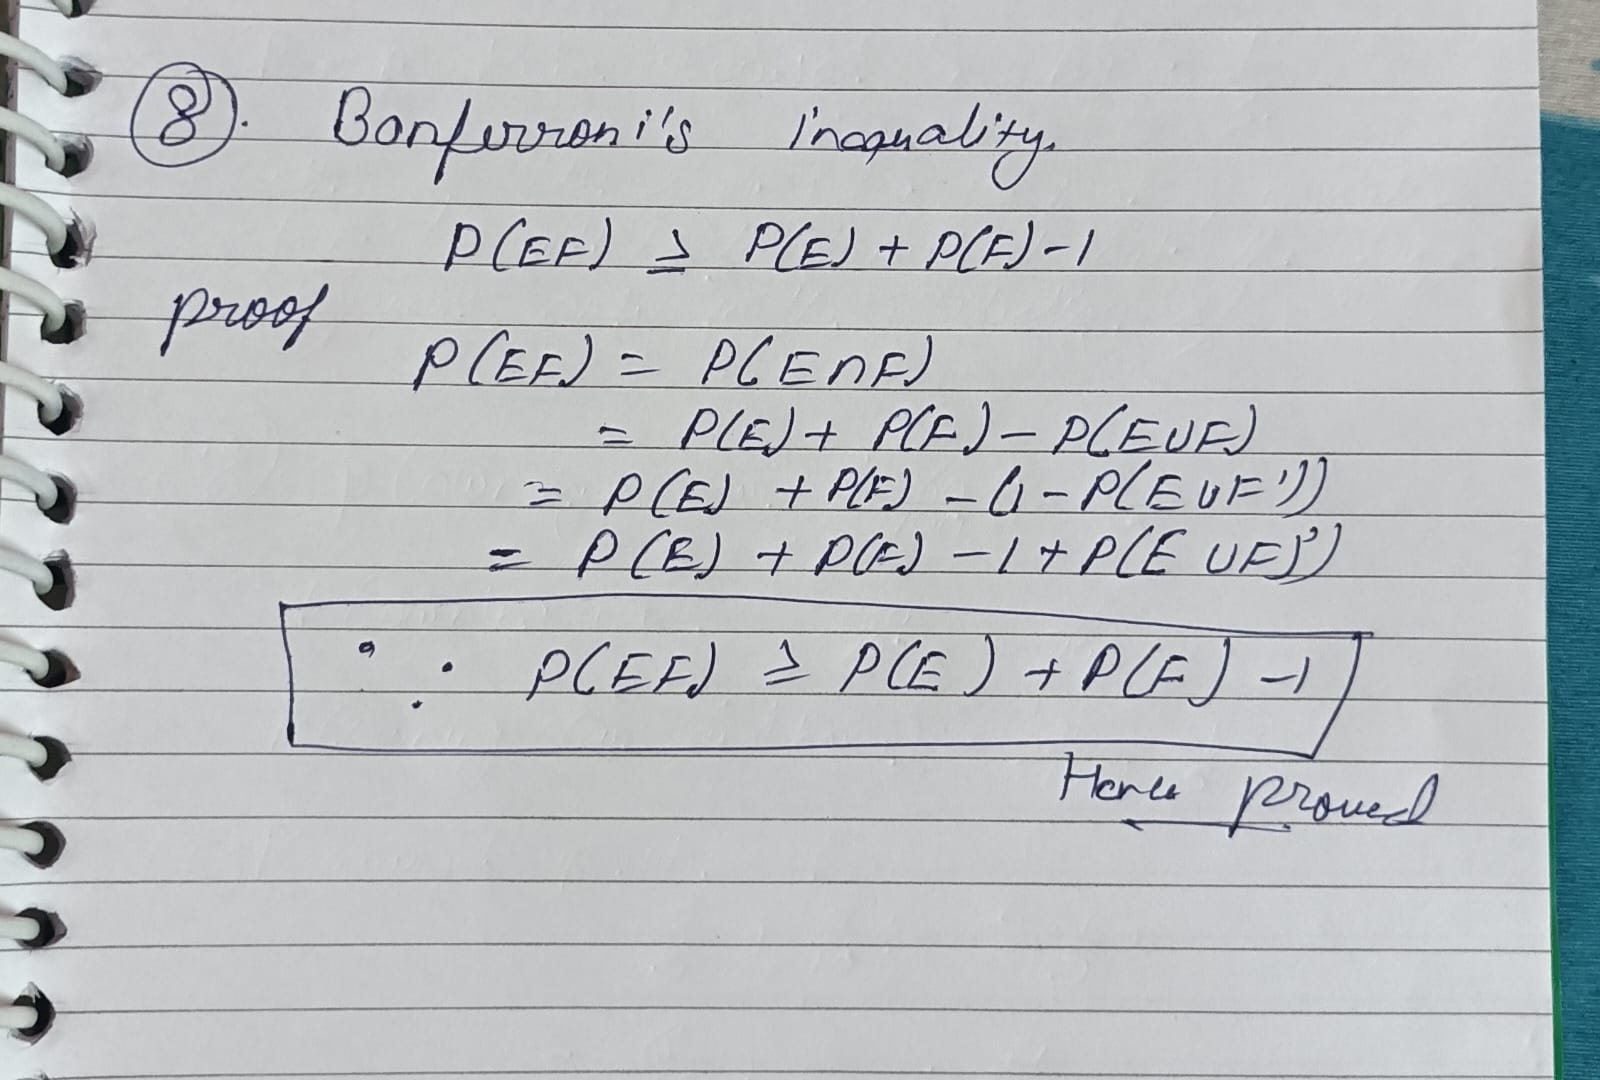 8. Bonferroni's inequality.
P(EF) ≥ P(E) + P(F) - 1
proof
P(EF) = P(E∩F)
= P(E) + P(F) - P(E∪F)
= P(E) + P(F) - (1 - P(E∪F'))
= P(E) + P(F) - 1 + P(E∪F)')
∴ P(EF) ≥ P(E) + P(F) - 1
Hence proved